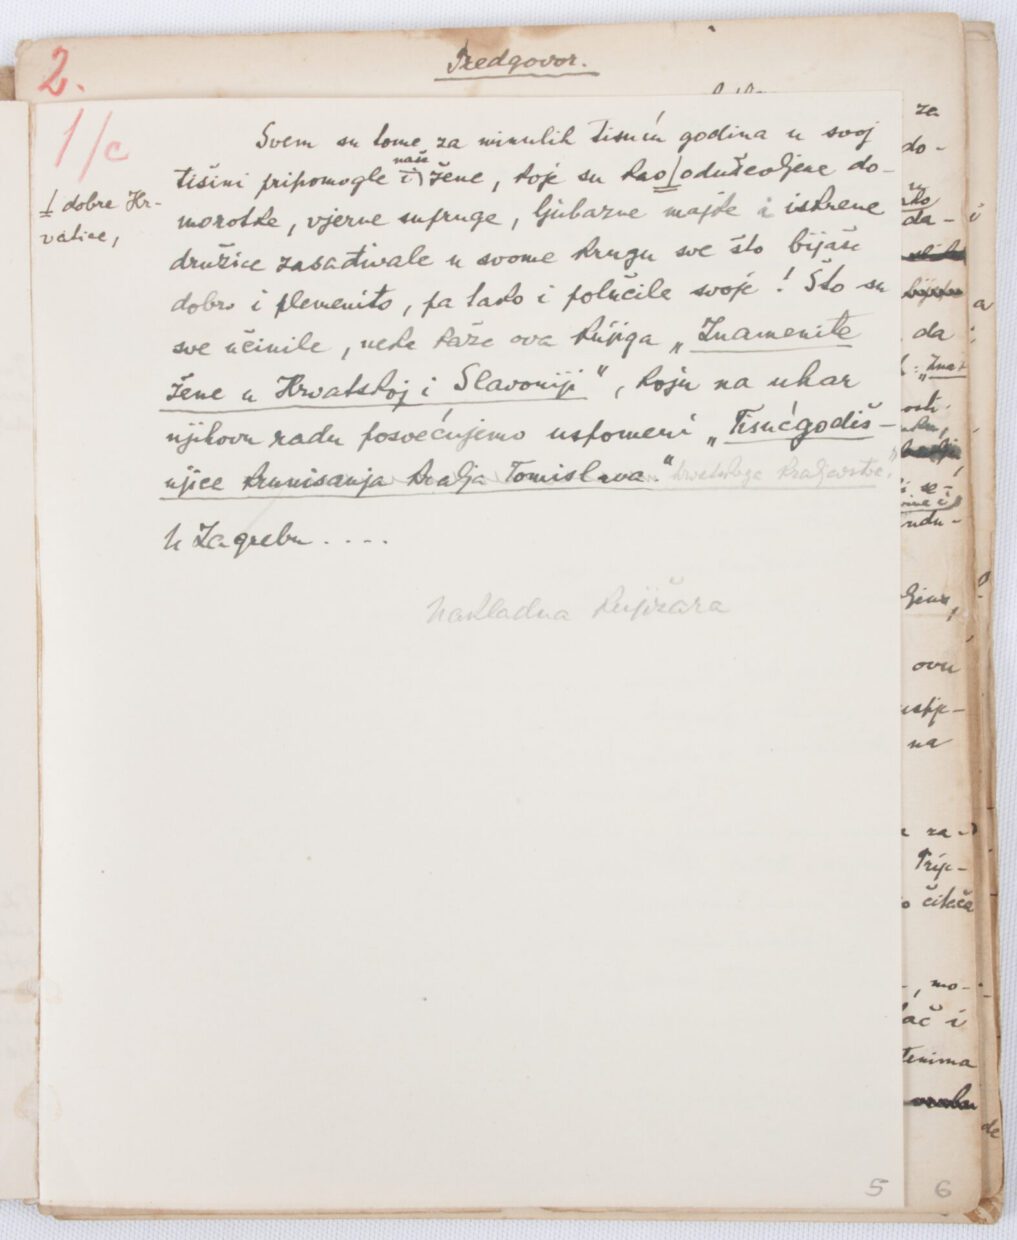 2.
Predgovor.
1/c
Svem su tome za minulih tisuću godina u svoj
naše
tišini pripomogle i žene, koje su kao oduševljene do-
I dobre Hr-
vatice,
morotke, vjerne supruge, ljubazne majke i iskrene
družice zasađivale u svome krugu sve što bijaše
dobro i plemenito, pa tako i polučile svoje! Što su
sve učinile, neka kaže ova knjiga „Znamenite
žene u Hrvatskoj i Slavoniji“, koju na uhar
njihovu radu posvećujemo uspomeni „Tisućgodiš-
njice krunisanja kralja Tomislava“ hrvatskoga kraljevstva.“
U Zagrebu....
Nakladna knjižara
za
do-
da-
i
a
da
ndu-
ovu
na
za-
Trip-
čitača
, mo-
ač i
tenima
de
5
6